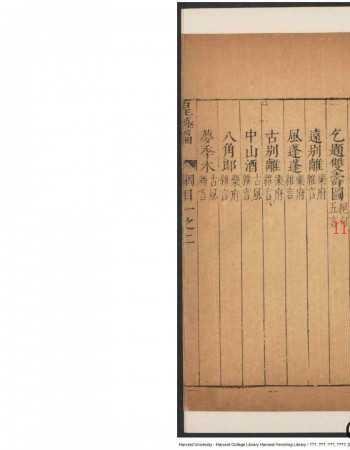 乞題雙壽圖 絕句五言
遠別離 樂府雜言
風蓬蓬 樂府雜言
古別離 樂府雜言
中山酒 古風雜言
八角郎 樂府雜言
夢乔木 古風
綱目 一之二
11
Harvard University - Harvard College Library Harvard-Yenching Library / ???. ???. ???. ????.